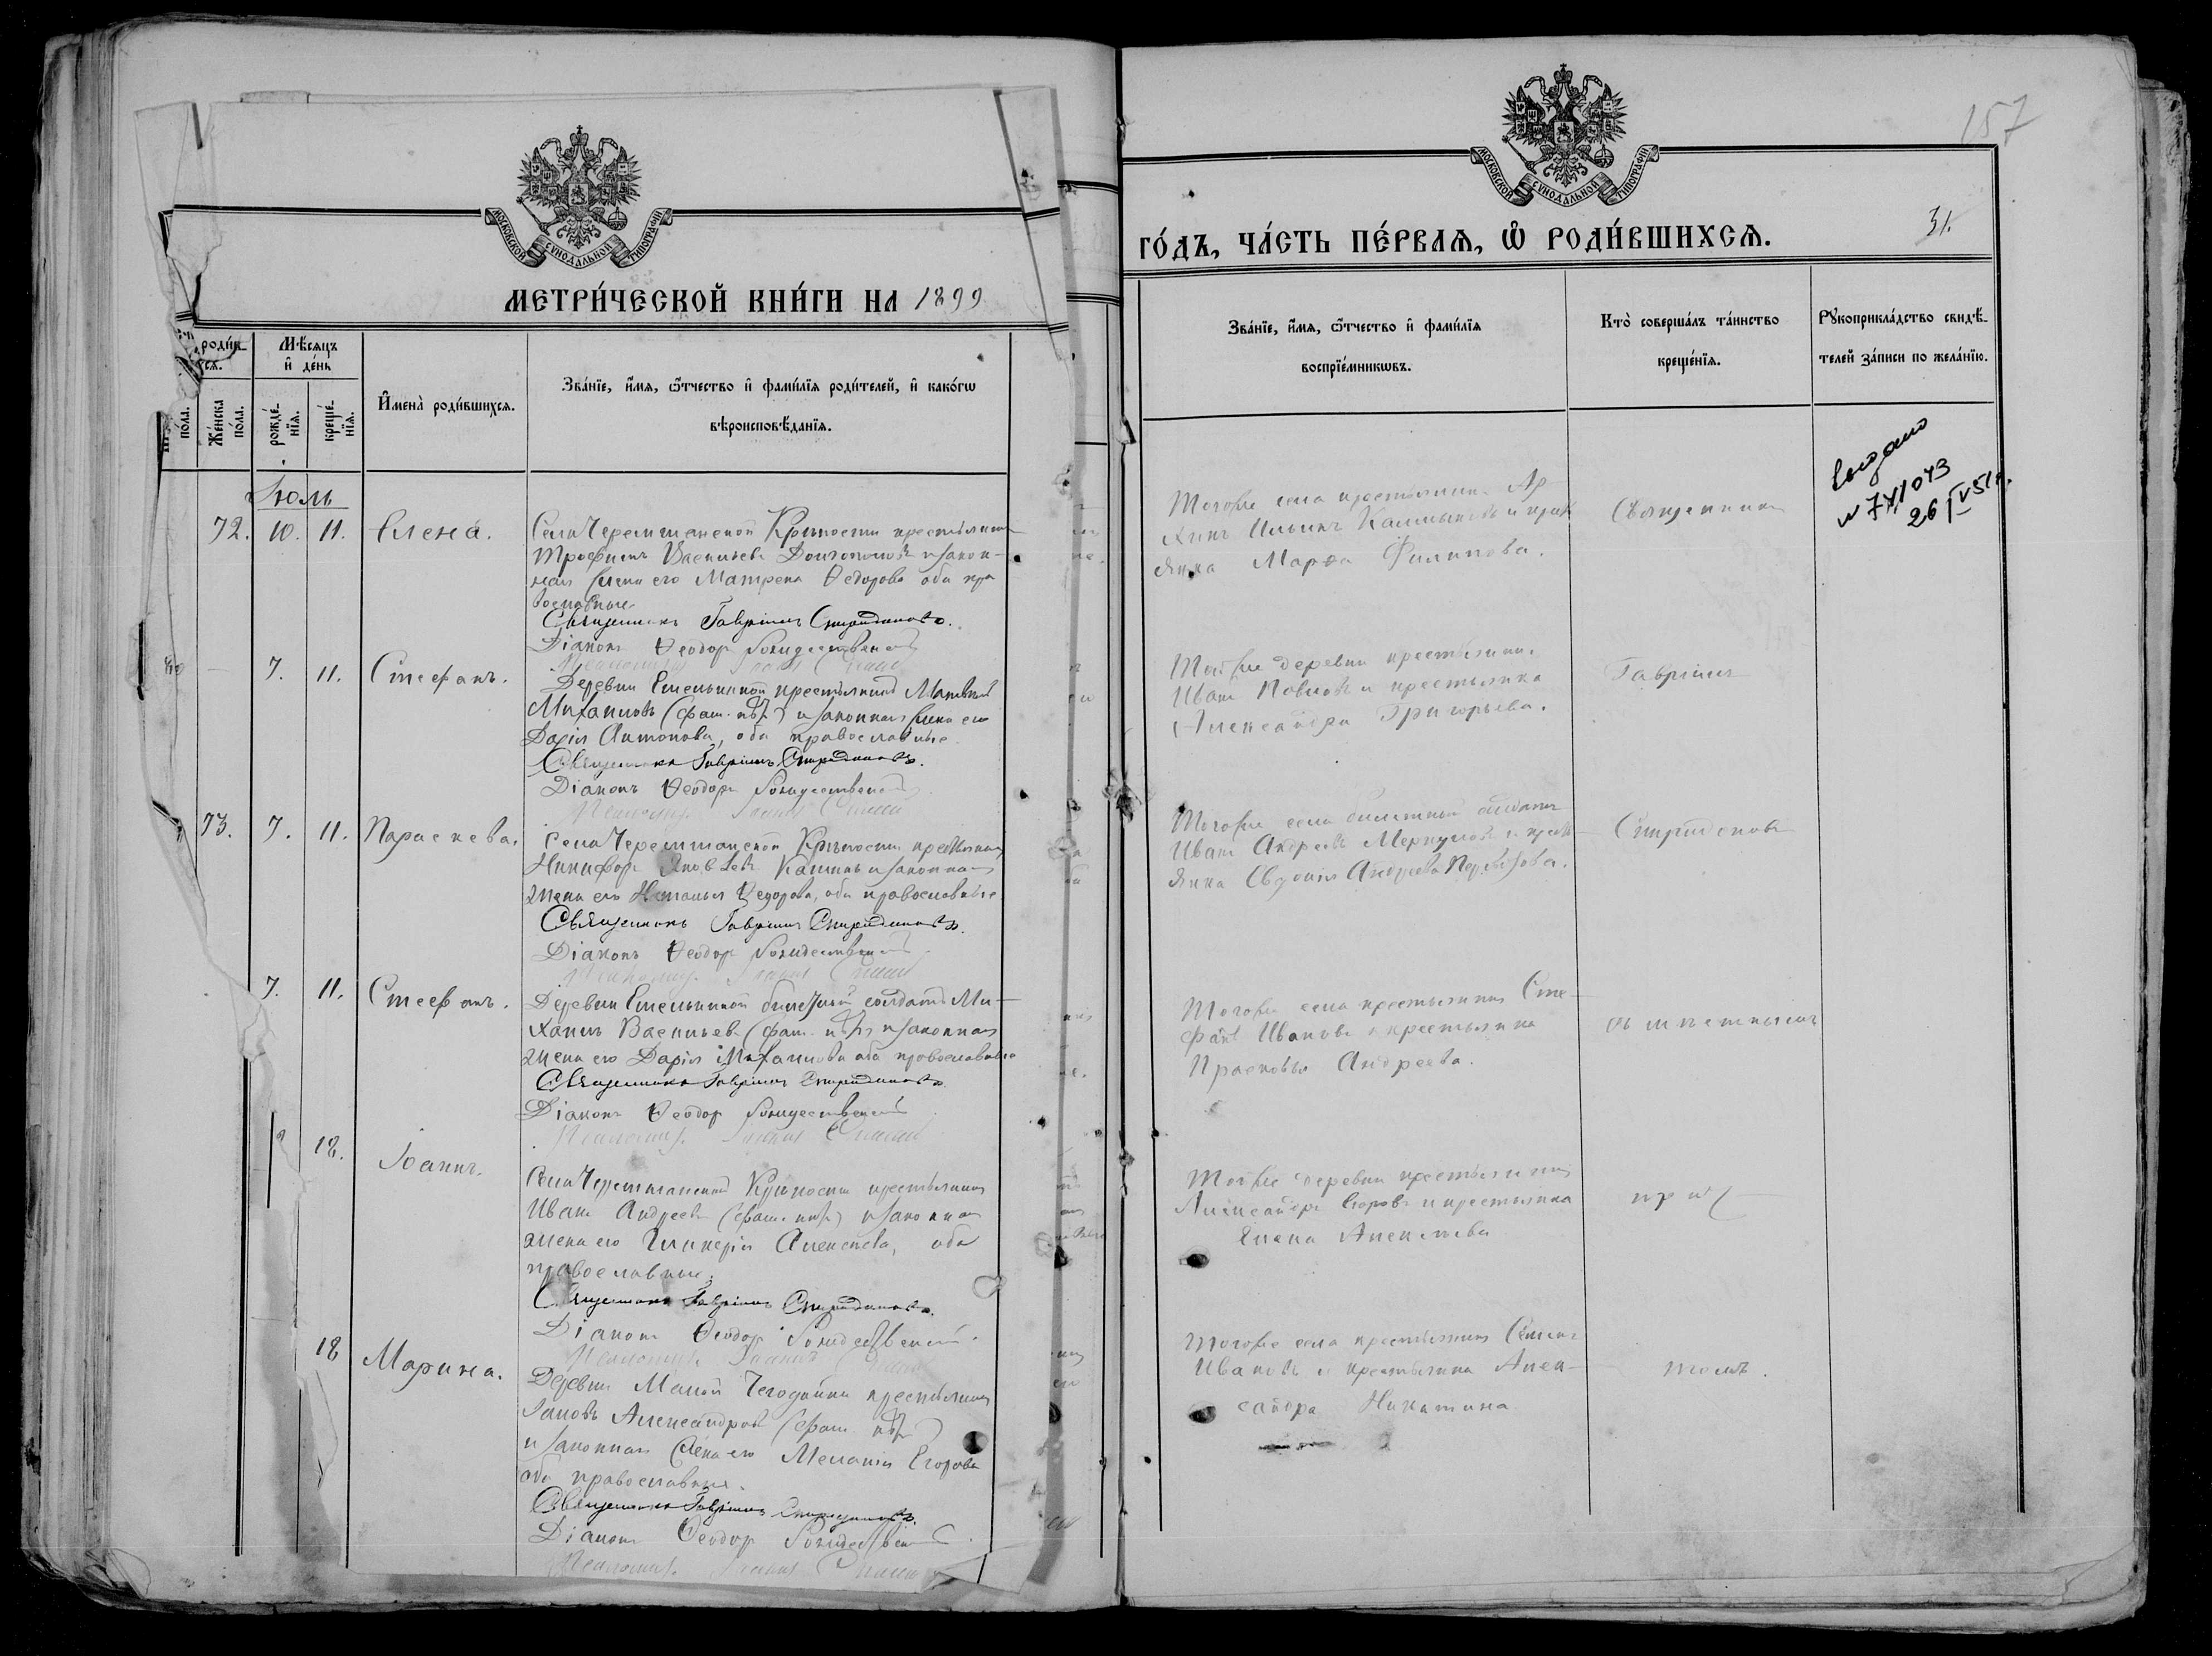 МОСКОВСКОЙ СУНОДАЛЬНОЙ ТИПОГРАФІИ
МЕТРИ́ЧЕСКОЙ КНИ́ГИ НА 1899
роди́в-
МѢ́сяцъ
и҆ де́нь
по́ла.
Же́нска
по́ла.
рожде́-
нїя.
креще́-
нїя.
И҆мена̀ роди́вшихся.
Зва́нїе, и҆́мя, ѻ҆́тчество и҆ фами́лїя роди́телей, и҆ како́гѡ
вѣроисповѣ́данїя.
Іюль
72. 10. 11. Елена.
Села Черемшанской Крѣпости крестьянинъ
Трофимъ Васильевъ и закон-
ная жена его Матрена Ѳедорова оба пра
вославные
Священникъ Гавріилъ Спиридоновъ.
Діаконъ Ѳеодоръ Рождественскій
7. 11. Стефанъ.
Деревни Емелькиной крестьянинъ Матвѣй
Михаиловъ (фам. нѣтъ) и законная жена его
Дарія Антонова, оба православные
Священникъ Гавріилъ Спиридоновъ.
Діаконъ Ѳеодоръ Рождественскій
73. 7. 11. Параскева.
Села Черемшанской Крѣпости крестьянинъ
Никифоръ Яковлевъ и законная
жена его Наталья Ѳедорова, оба православные
Священникъ Гавріилъ Спиридоновъ.
Діаконъ Ѳеодоръ Рождественскій
7. 11. Стефанъ.
Деревни Емелькиной билетный солдатъ Ми-
хаилъ Васильевъ (фам. нѣтъ) и законная
жена его Дарія Михаилова оба православные
Священникъ Гавріилъ Спиридоновъ.
Діаконъ Ѳеодоръ Рождественскій
18. Іоаннъ.
Села Черемшанской Крѣпости крестьянинъ
Иванъ Андреевъ (фам. нѣтъ) и законная
жена его Гликерія Алексѣева, оба
православные.
Священникъ Гавріилъ Спиридоновъ.
Діаконъ Ѳеодоръ Рождественскій.
18 Марина.
Деревни Малой Чегодайки крестьянинъ
Іаковъ Александровъ (фам. нѣтъ)
и законная жена его Меланія Егорова
оба православные.
Священникъ Гавріилъ Спиридоновъ.
Діаконъ Ѳеодоръ Рождественскій
157
МОСКОВСКОЙ СУНОДАЛЬНОЙ ТИПОГРАФІИ
ГО́ДЪ, ЧА́СТЬ ПЕ́РВАЯ, Ѽ РОДИ́ВШИХСЯ.
31.
Зва́нїе, и҆́мя, ѻ҆́тчество и҆ фами́лїя
воспрїе́мникѡвъ.
Кто̀ соверша́лъ та́инство
креще́нїя.
Рꙋкоприкла́дство свидѣ́-
телей за́писи по жела́нїю.
выдано
Тогоже села крестьянинъ Ар-
хипъ Ильинъ Калмыковъ и крест
янка Марѳа Филипова.
Священникъ
Тойже деревни крестьянинъ
Иванъ Павловъ и крестьянка
Александра Григорьева.
Гавріилъ
Тогоже села билетный солдатъ
Иванъ Андреевъ Меркуловъ и крест
янка Евдокія Андреева
Спиридоновъ
Тогоже села крестьянинъ Сте-
фанъ Ивановъ и крестьянка
Прасковья Андреева.
съ мѣстнымъ
Тойже деревни крестьянинъ
Александръ Егоровъ и крестьянка
Елена Алексѣева
прич-
Тогоже села крестьянинъ Семенъ
Ивановъ и крестьянка Алек-
сандра Никитина
томъ.